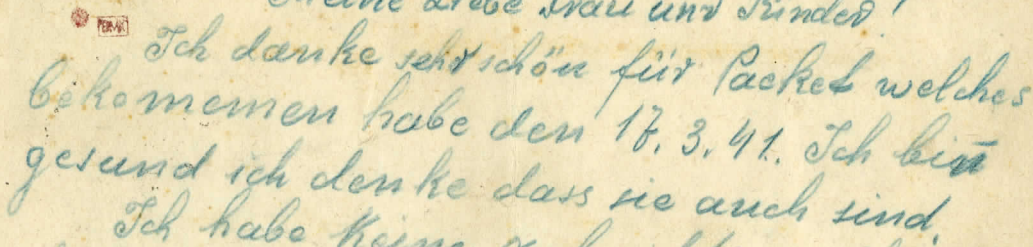 Meine Liebe Frau und Kinder!
Ich danke sehr schön für Packet welches
bekommemen habe den 17. 3. 41. Ich bin
gesund ich denke dass sie auch sind.
Ich habe Keine